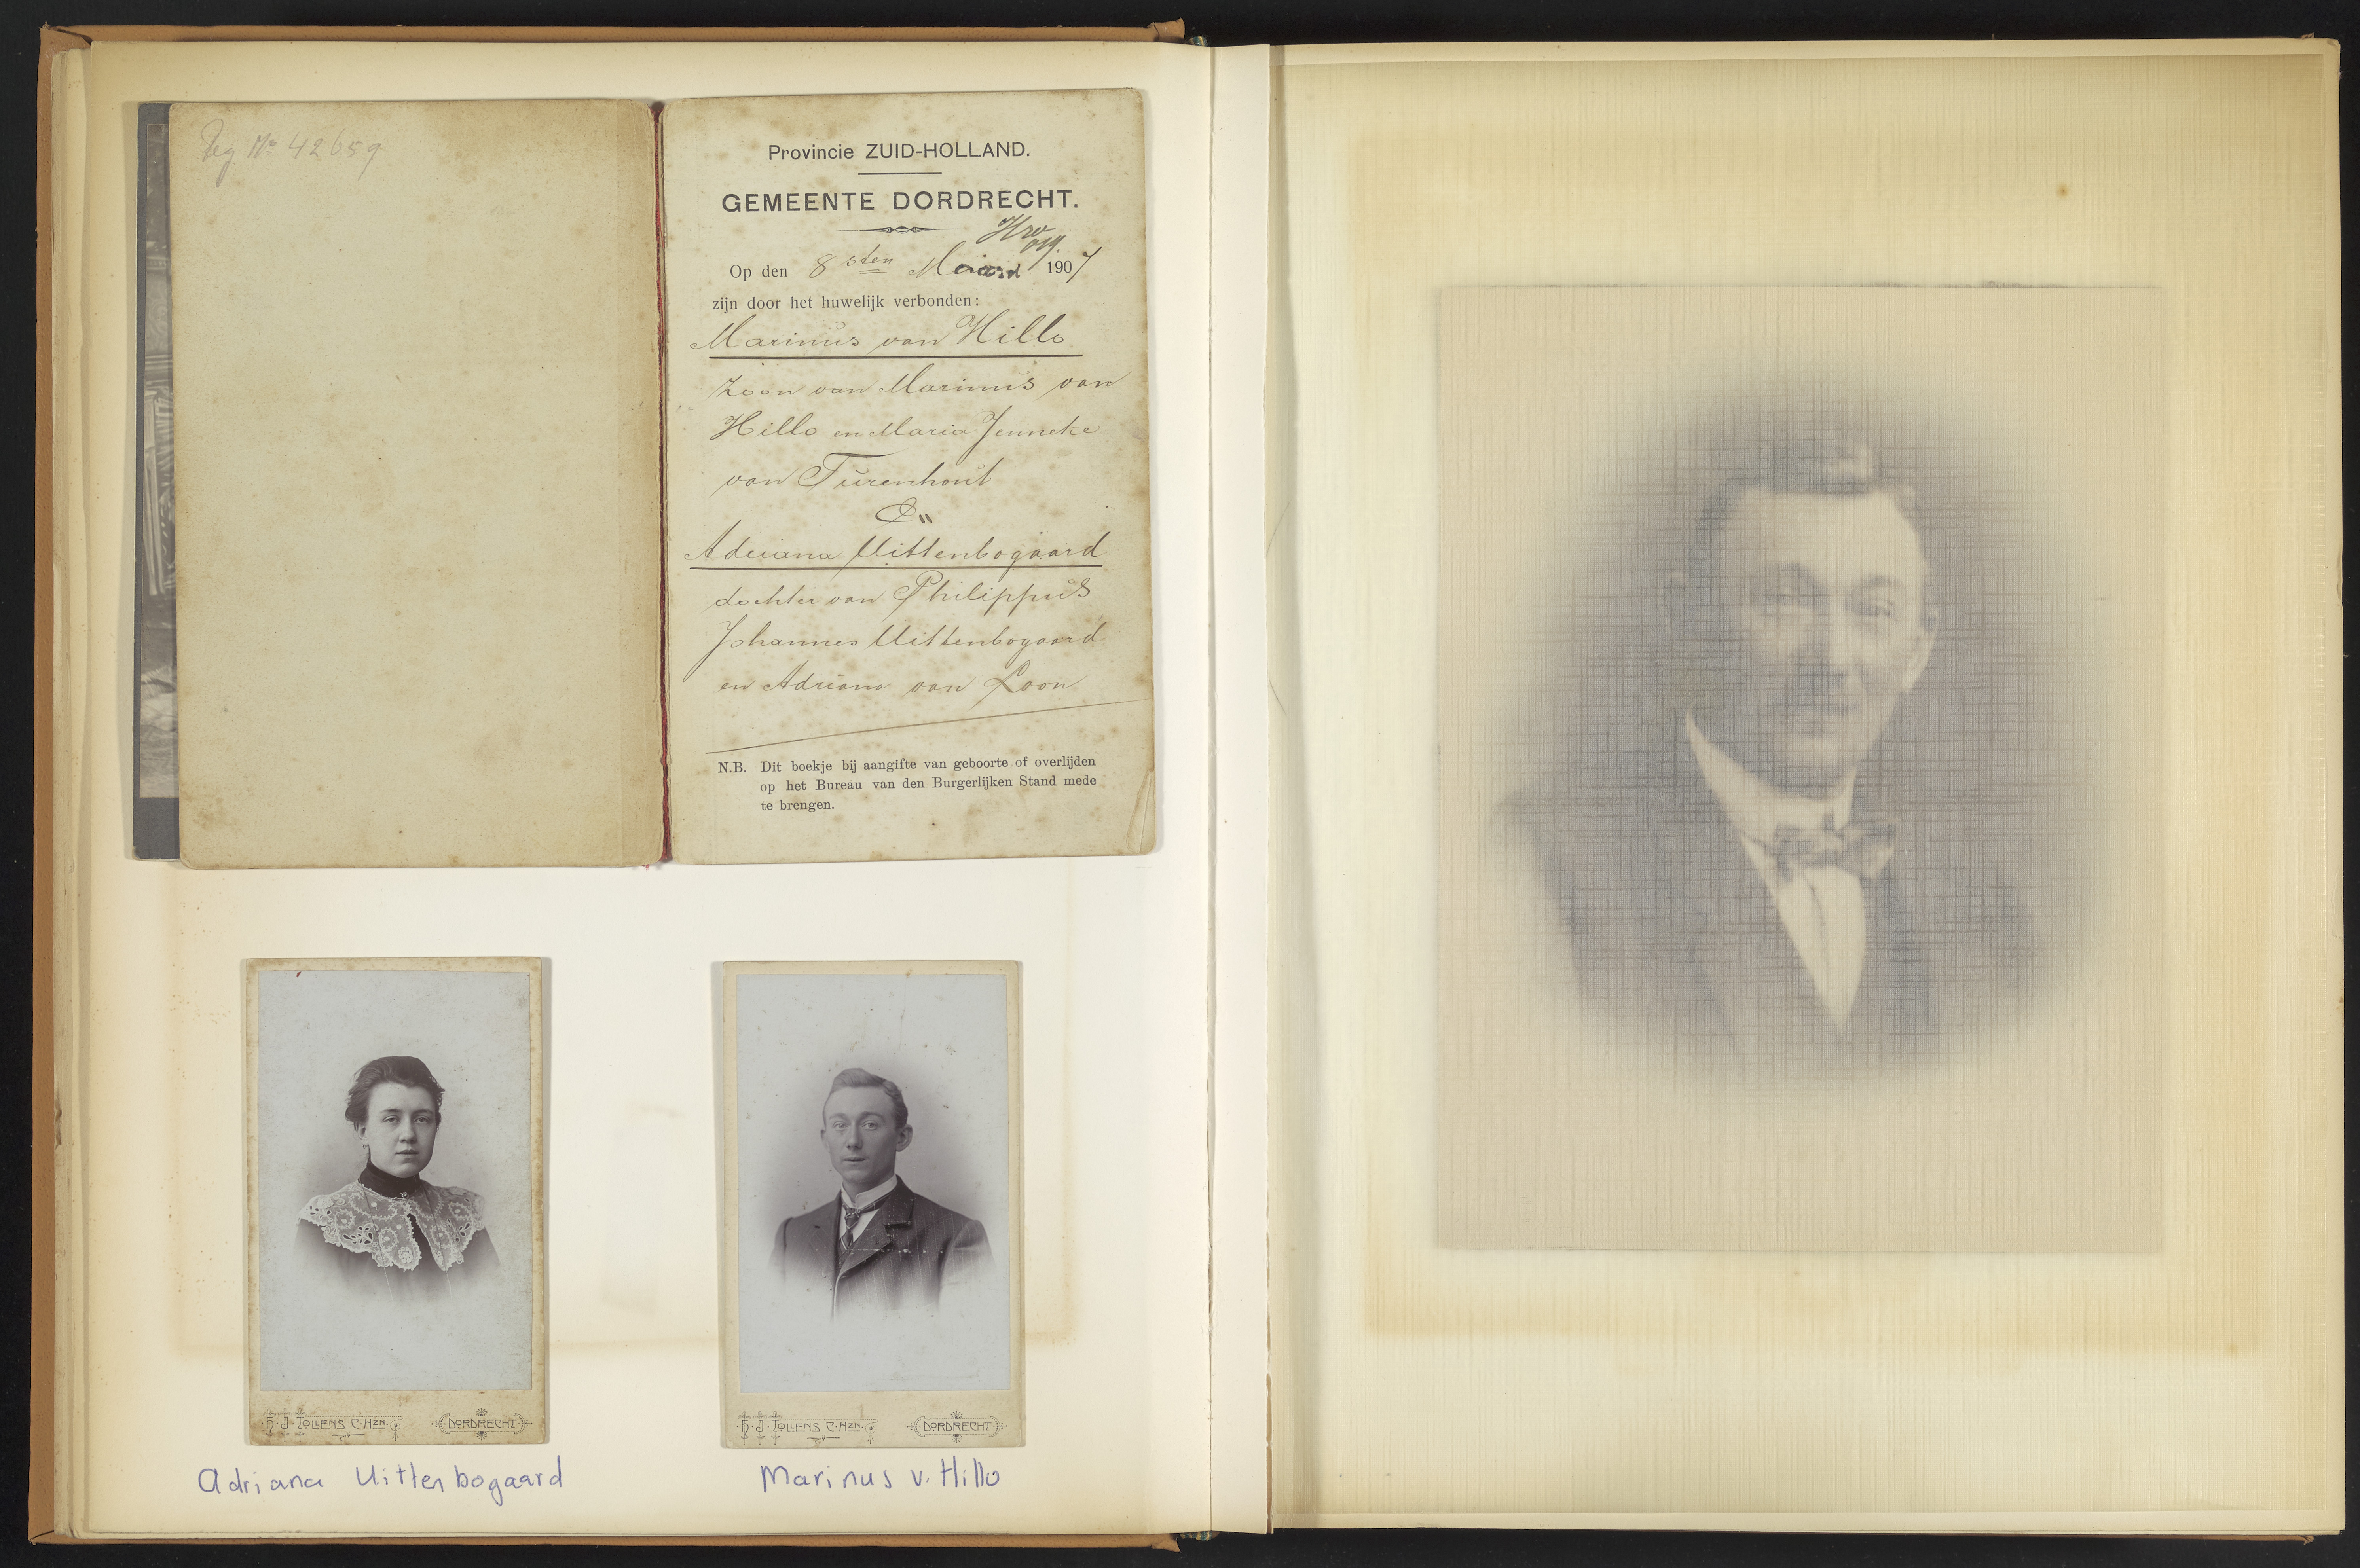 Reg No 42659
Provincie ZUID-HOLLAND.
GEMEENTE DORDRECHT.
Op den 8sten Maart 1907
zijn door het huwelijk verbonden:
Marinus van Hillo
Zoon van Marinus van
Hillo en Maria Jenneke
van Turenhout
En
Adriana Uittenbogaard
dochter van Philippus
Johannes Uittenbogaard
en Adriana van Loon
N.B. Dit boekje bij aangifte van geboorte of overlijden
op het Bureau van den Burgerlijken Stand mede
te brengen.
H. J. TOLLENS C. HZN. DORDRECHT
H. J. TOLLENS C. HZN. DORDRECHT
Adriana Uittenbogaard
Marinus v. Hillo